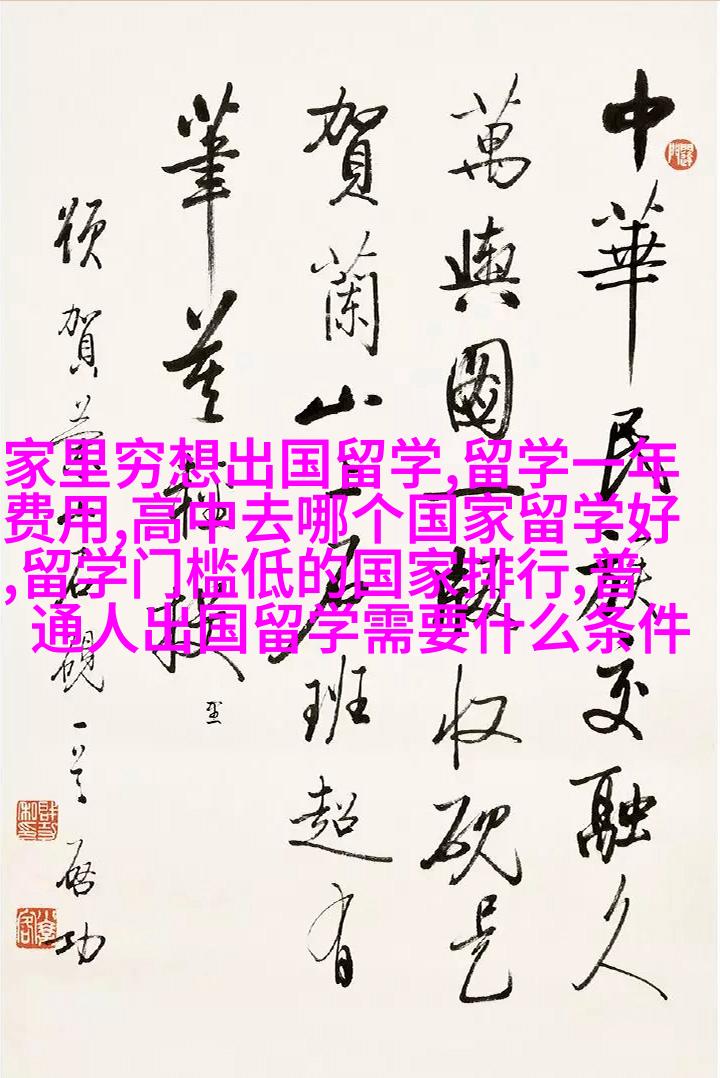 家里穷想出国留学,留学一年
费用,高中去哪个国家留学好
,留学门槛低的国家排行,普
通人出国留学需要什么条件
中華民族交融久
萬輿圖一版收硯是
賀蘭山下石班超有
筆莫輕投 里
頌賀蘭石硯一首 启功